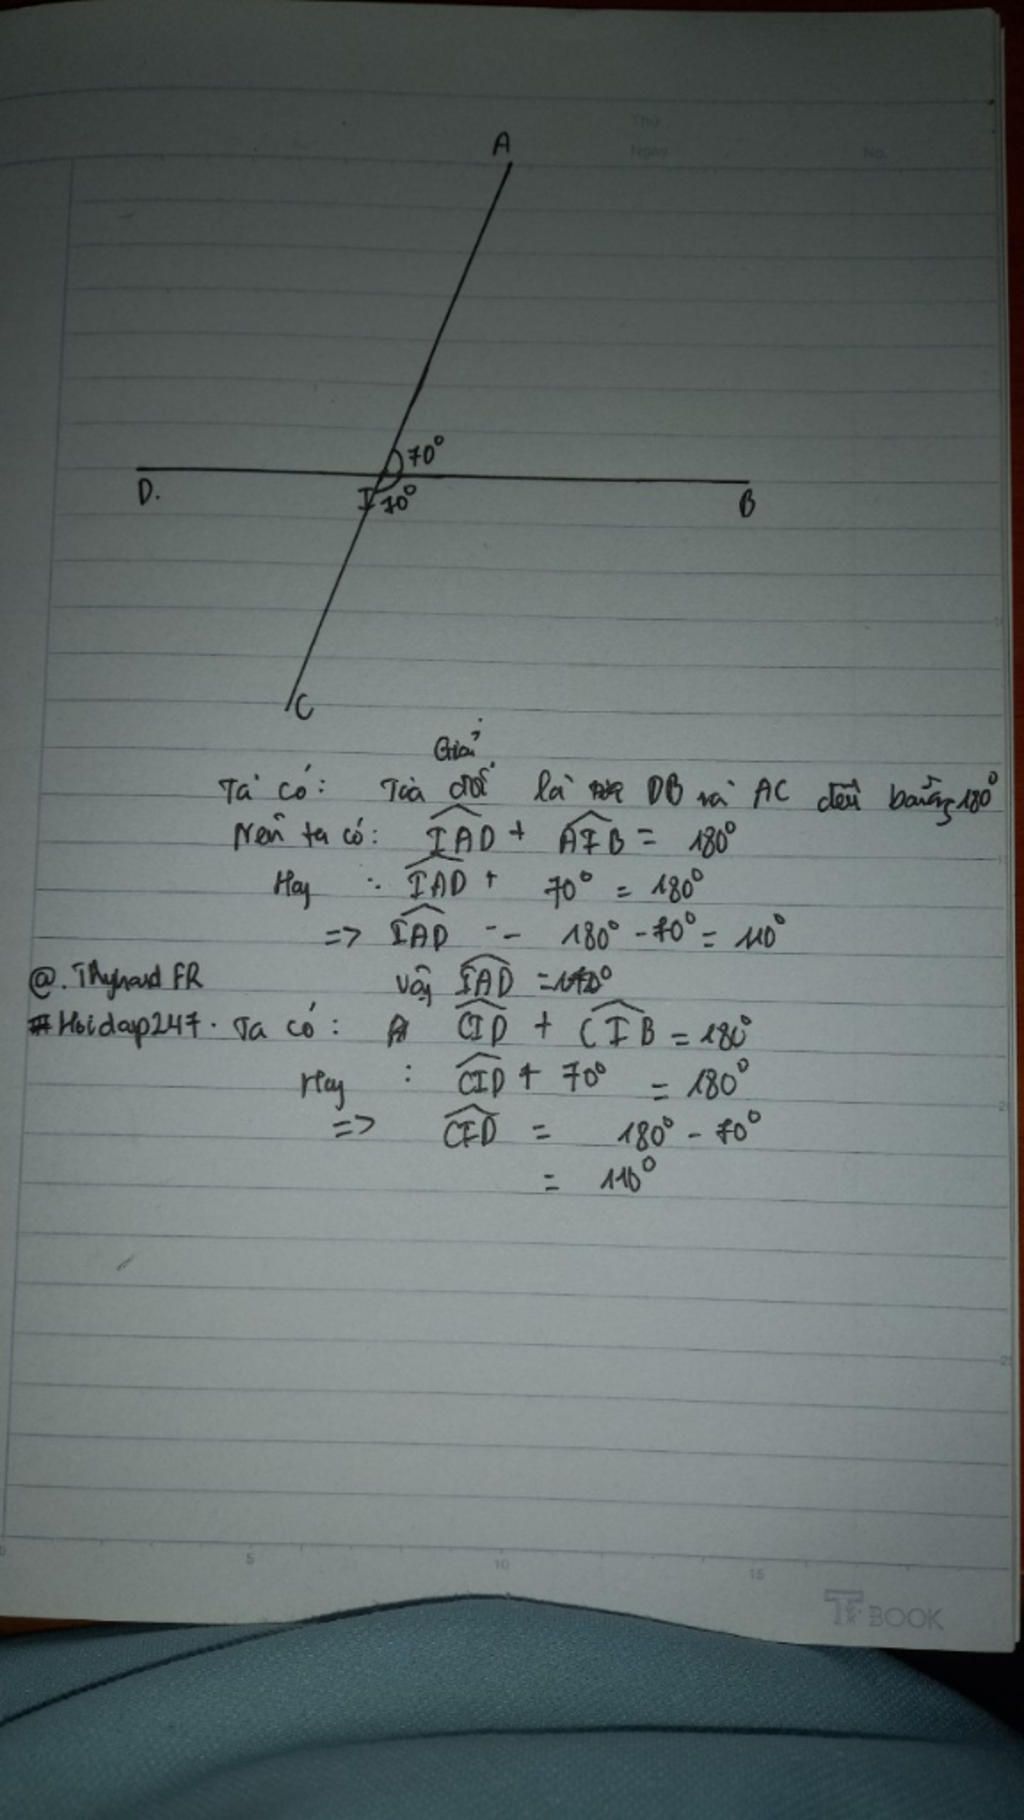 Thứ
Ngày No.
A
70°
D.
I 70°
B
C
Giải
Ta có: Tia đối là DB và AC đều bằng 180°
Nên ta có: IAD + AIB = 180°
Hay : IAD + 70° = 180°
=> IAD = 180° - 70° = 110°
@.Thyhard FR vậy IAD = 110°
#Hoidap247. Ta có: CID + CIB = 180°
Hay : CID + 70° = 180°
=> CID = 180° - 70°
= 110°
5 10 15
BOOK